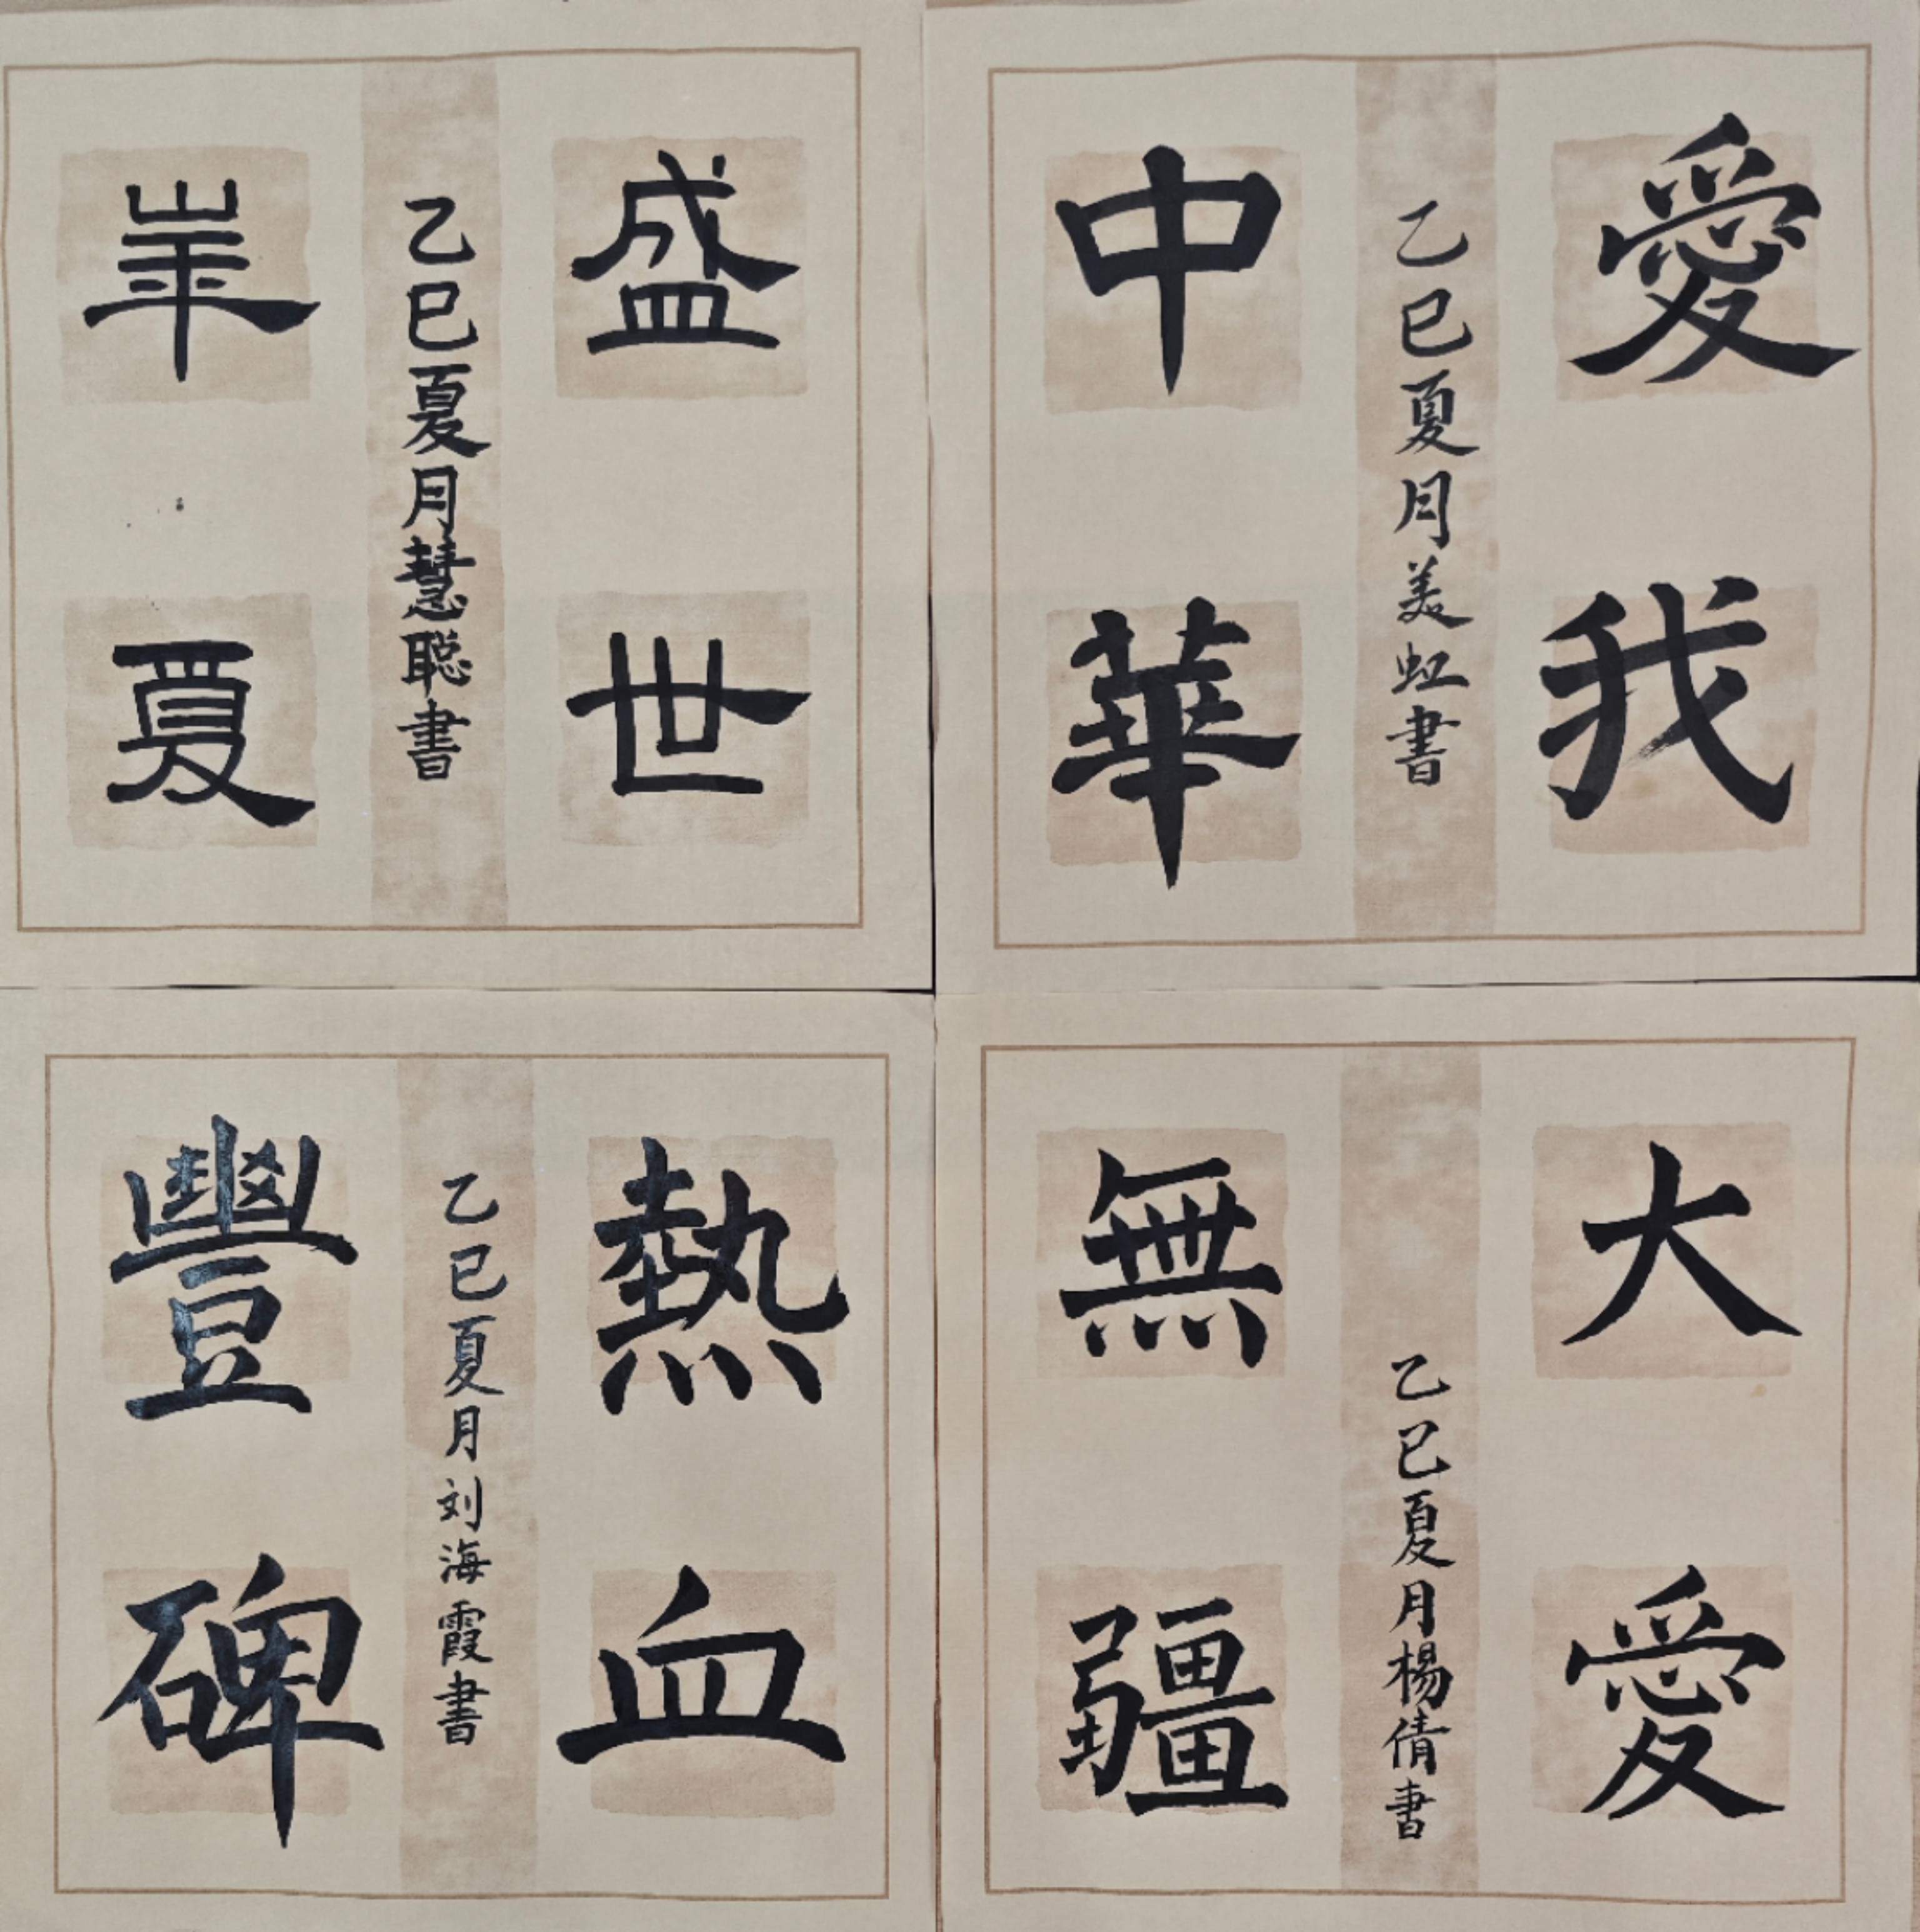 盛世
乙巳夏月慧聪書
華夏
愛我
乙巳夏月美虹書
中華
熱血
乙巳夏月刘海霞書
豐碑
大愛
乙巳夏月楊倩書
無疆